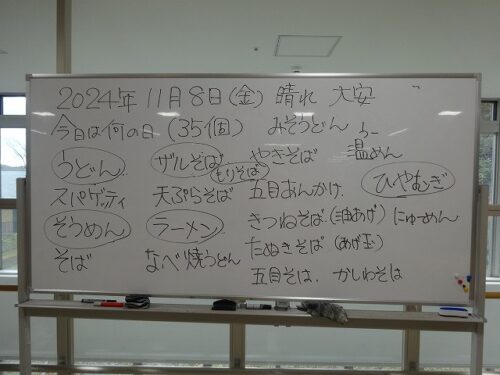 2024年 11月 8日(金) 晴れ 大安
今日は何の日 (35個) みそうどん
うどん ザルそば もりそば やきそば 温めん
スパゲッティ 天ぷらそば 五目あんかけ ひやむぎ
そうめん ラーメン きつねそば(油あげ) にゅーめん
そば なべ焼うどん たぬきそば(あげ玉)
五目そば. かしわそば